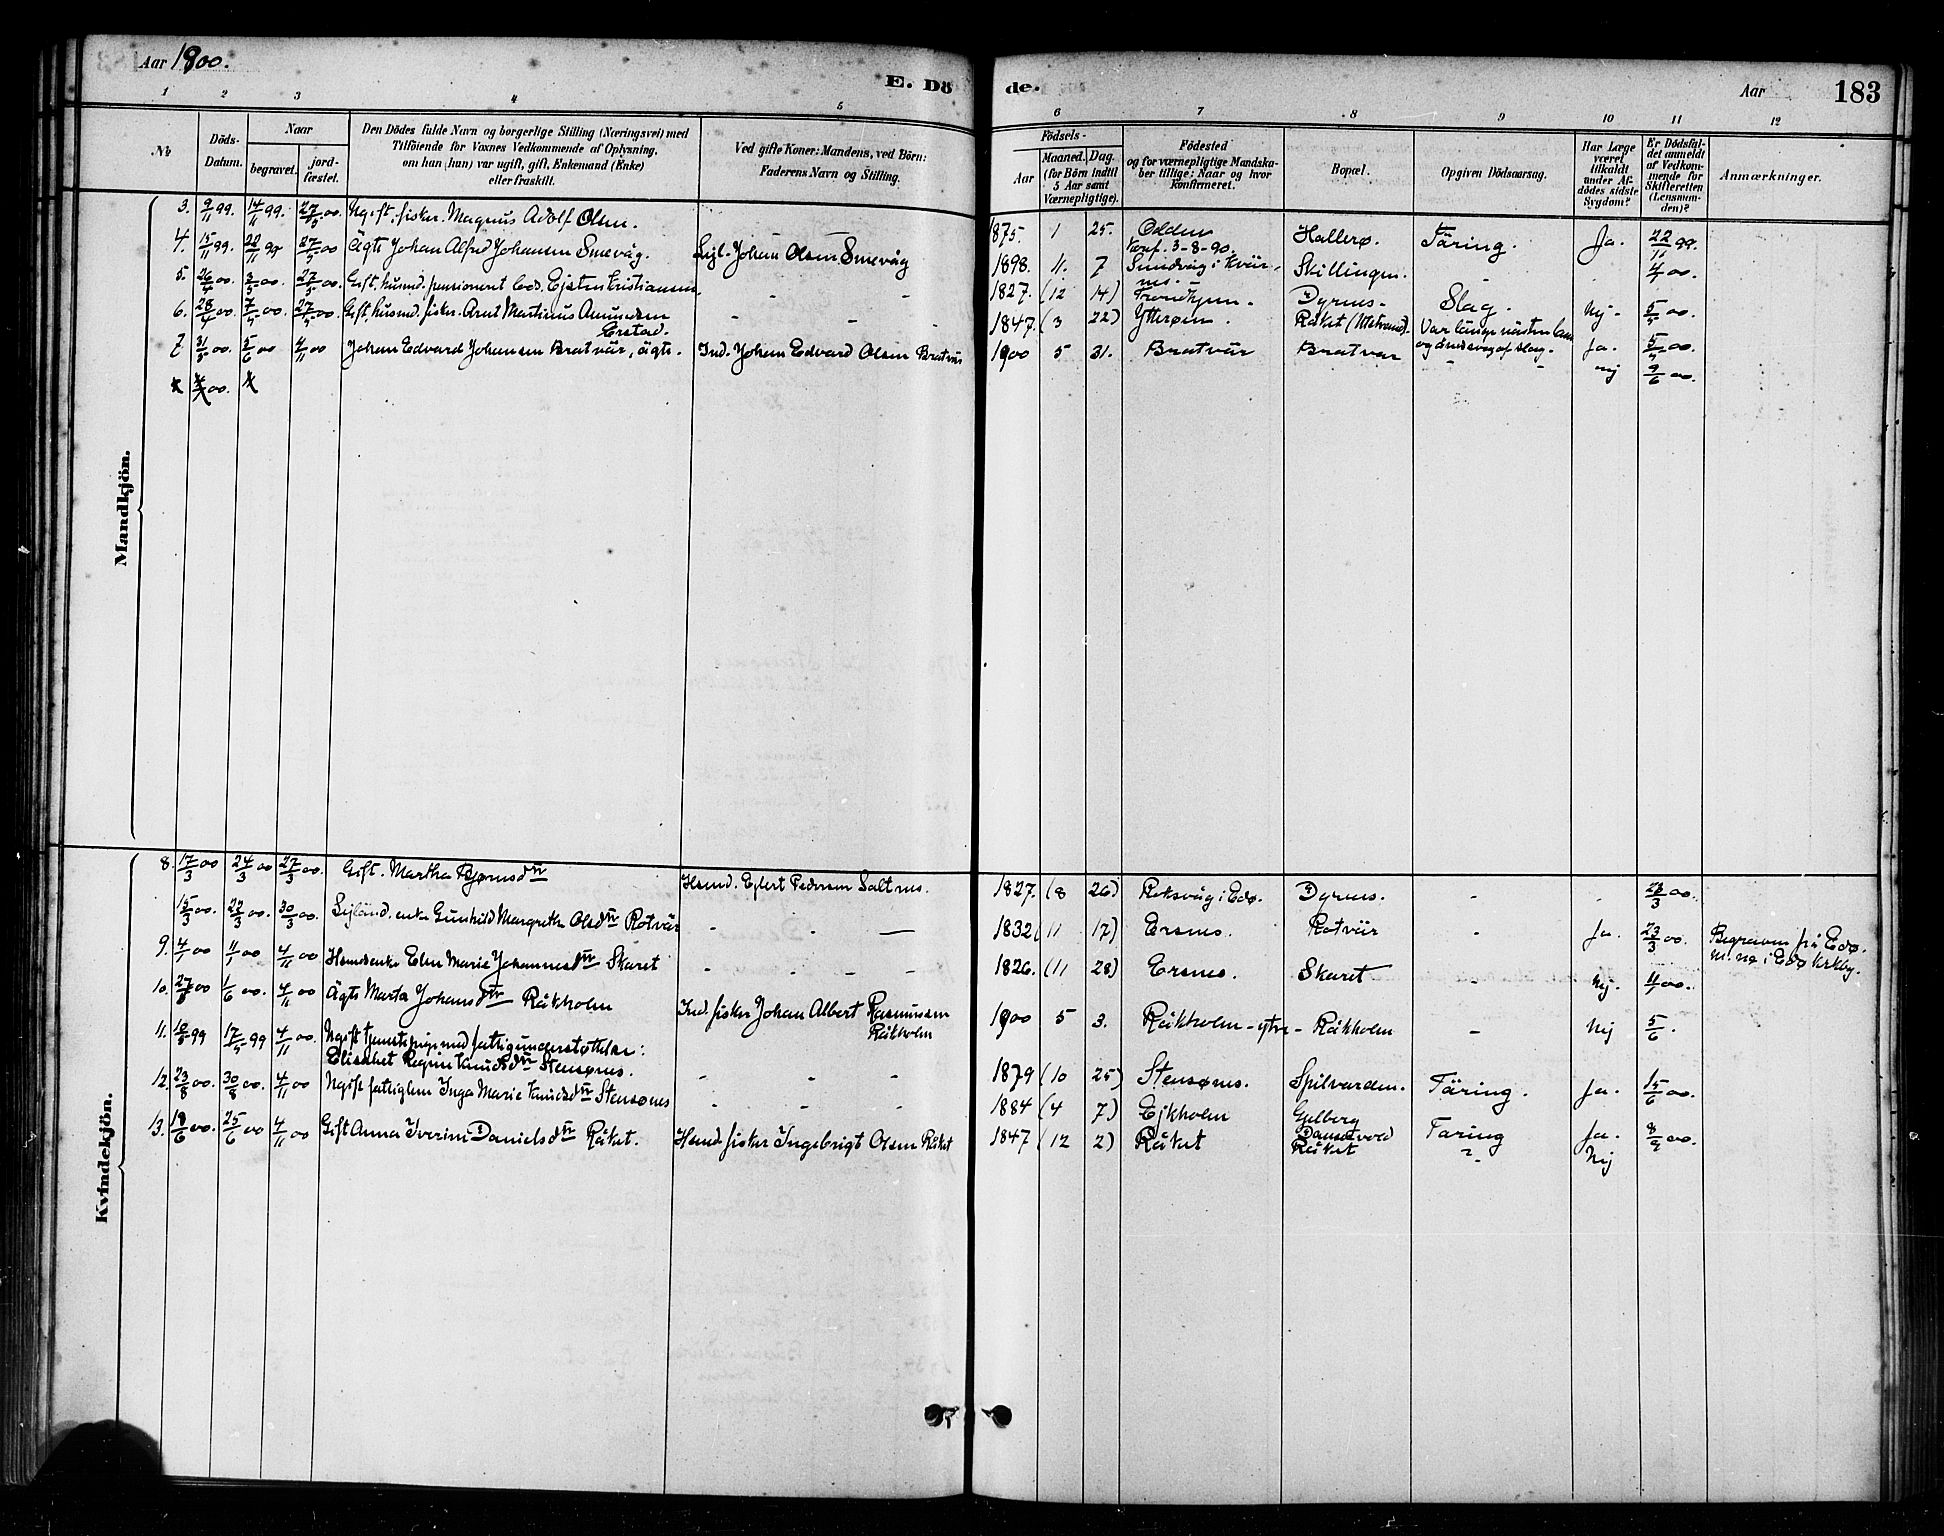 Aar 1900.
E. Dö
de.
Aar
183
1 2 3 4 5 6 7 8 9 10 11 12
No
Döds-
Datum.
Naar
begravet.
jord-
fæstet.
Den Dödes fulde Navn og borgerlige Stilling (Næringsvei) med
Tilföiende for Voxnes Vedkommende af Oplysning,
om han (hun) var ugift, gift, Enkemand (Enke)
eller fraskilt.
Ved gifte Koner: Mandens, ved Börn:
Faderens Navn og Stilling.
Födsels-
Aar
Maaned. Dag.
(for Börn indtil
5 Aar samt
Værnepligtige).
Födested
og for værnepligtige Mandska-
ber tillige: Naar og hvor
Konfirmeret.
Bopæl.
Opgiven Dödsaarsag.
Har Læge
været
tilkaldt
under Af-
dödes sidste
Sygdom?
Er Dödsfal-
det anmeldt
af Vedkom-
mende for
Skifteretten
(Lensman-
den)?
Anmærkninger.
Mandkjön.
3. 9/11 99. 14/11 99. 27/5 00. Ugift. fisker. Magnus Adolf Olsen. 1875. 1 25. Odden Hallerø. Täring. Ja. 22/11 99.
Konf. 3-8-90.
4. 15/11 99. 22/11 99 27/5 00 Ägte Johan Alfred Johansen Smevåg. Sejl. Johan Olsen Smevåg 1898. 11. 7 Sundvåg i Kvär- Skillingen. - - 4/00.
nes. -
5. 26/4 00. 3/5 00. 27/5 00. Gift, husmd. pensioneret lods. Ejsten Kristiansen. - - 1827. (12 14) Trondhjem. Dyrnes - Slag. Nej - 5/5 00.
6. 28/4 00. 7/5 00. 27/5 00 Gift, husmd. fisker. Arnt Martinus Amundsen - - - 1847. (3 22) Ytterøen. Råket Var länge næsten lam
Erstad. og døde svag af slag. Ja. 5/5 00.
7 31/5 00. 5/6 00 4/11 00 Johan Edvard Johansen Bratvär, ägte. Ind. Johan Edvard Olsen Bratvär 1900 5 31. Bratvär Bratvar - - nej 9/6 00.
00.
Kvindekjön.
8. 17/3 00 24/3 00 27/3 00. Gift. Martha Bjørnsdtr Husmd. Ejlert Pedersen Saltnes. 1827. (8 26) Reksvåg i Edø. Dyrnes. - - 23/3 00.
15/3 00. 22/3 00. 30/3 00. enke Gunhild Margrethe Olsdtr Rotvär - - — 1832 (11 17) Ersnes. Rotvär - Ja. 23/3 00. Begraven frå Edø.
m. no i Edø kirkby.
9. 4/1 00 11/1 00 4/11 00 Husmdsenke Elen Marie Johannesdtr Skaret - - - - 1826. (11 28) Ersnes. Skaret - Nej. 11/1 00.
10. 27/5 00 1/6 00. 4/11 00 Ägte Marta Johansdtr Råkholm Ind. fisker Johan Albert Rasmussen
Råkholm 1900 5 3. Råkholm - ytre - Råkholm - Nej 5/6.
11. 10/5 99 17/5 99 4/11 00 Ugift tjenestepige med fattigunderstøttelse:
Elisabet Regine Knudsdtr Stensønes. - - - 1879 (10 25) Stensønes. Spilvarden. Täring. Ja. 15/6 00.
12. 23/8 00. 30/8 00. 4/11 00 Ugift fattiglem Inga Marie Knudsdtr Stensønes - - - 1884 (4 7) Ejkholm Gulberg Taring Ja. 8/9 00.
13. 18/6 00. 25/6 00 4/11 00 Gift Anna Iverine Danielsdtr Råket. Husmd. fisker Ingebrigt Olsen Råket 1847 (12 2) Råket Råket ? Nej